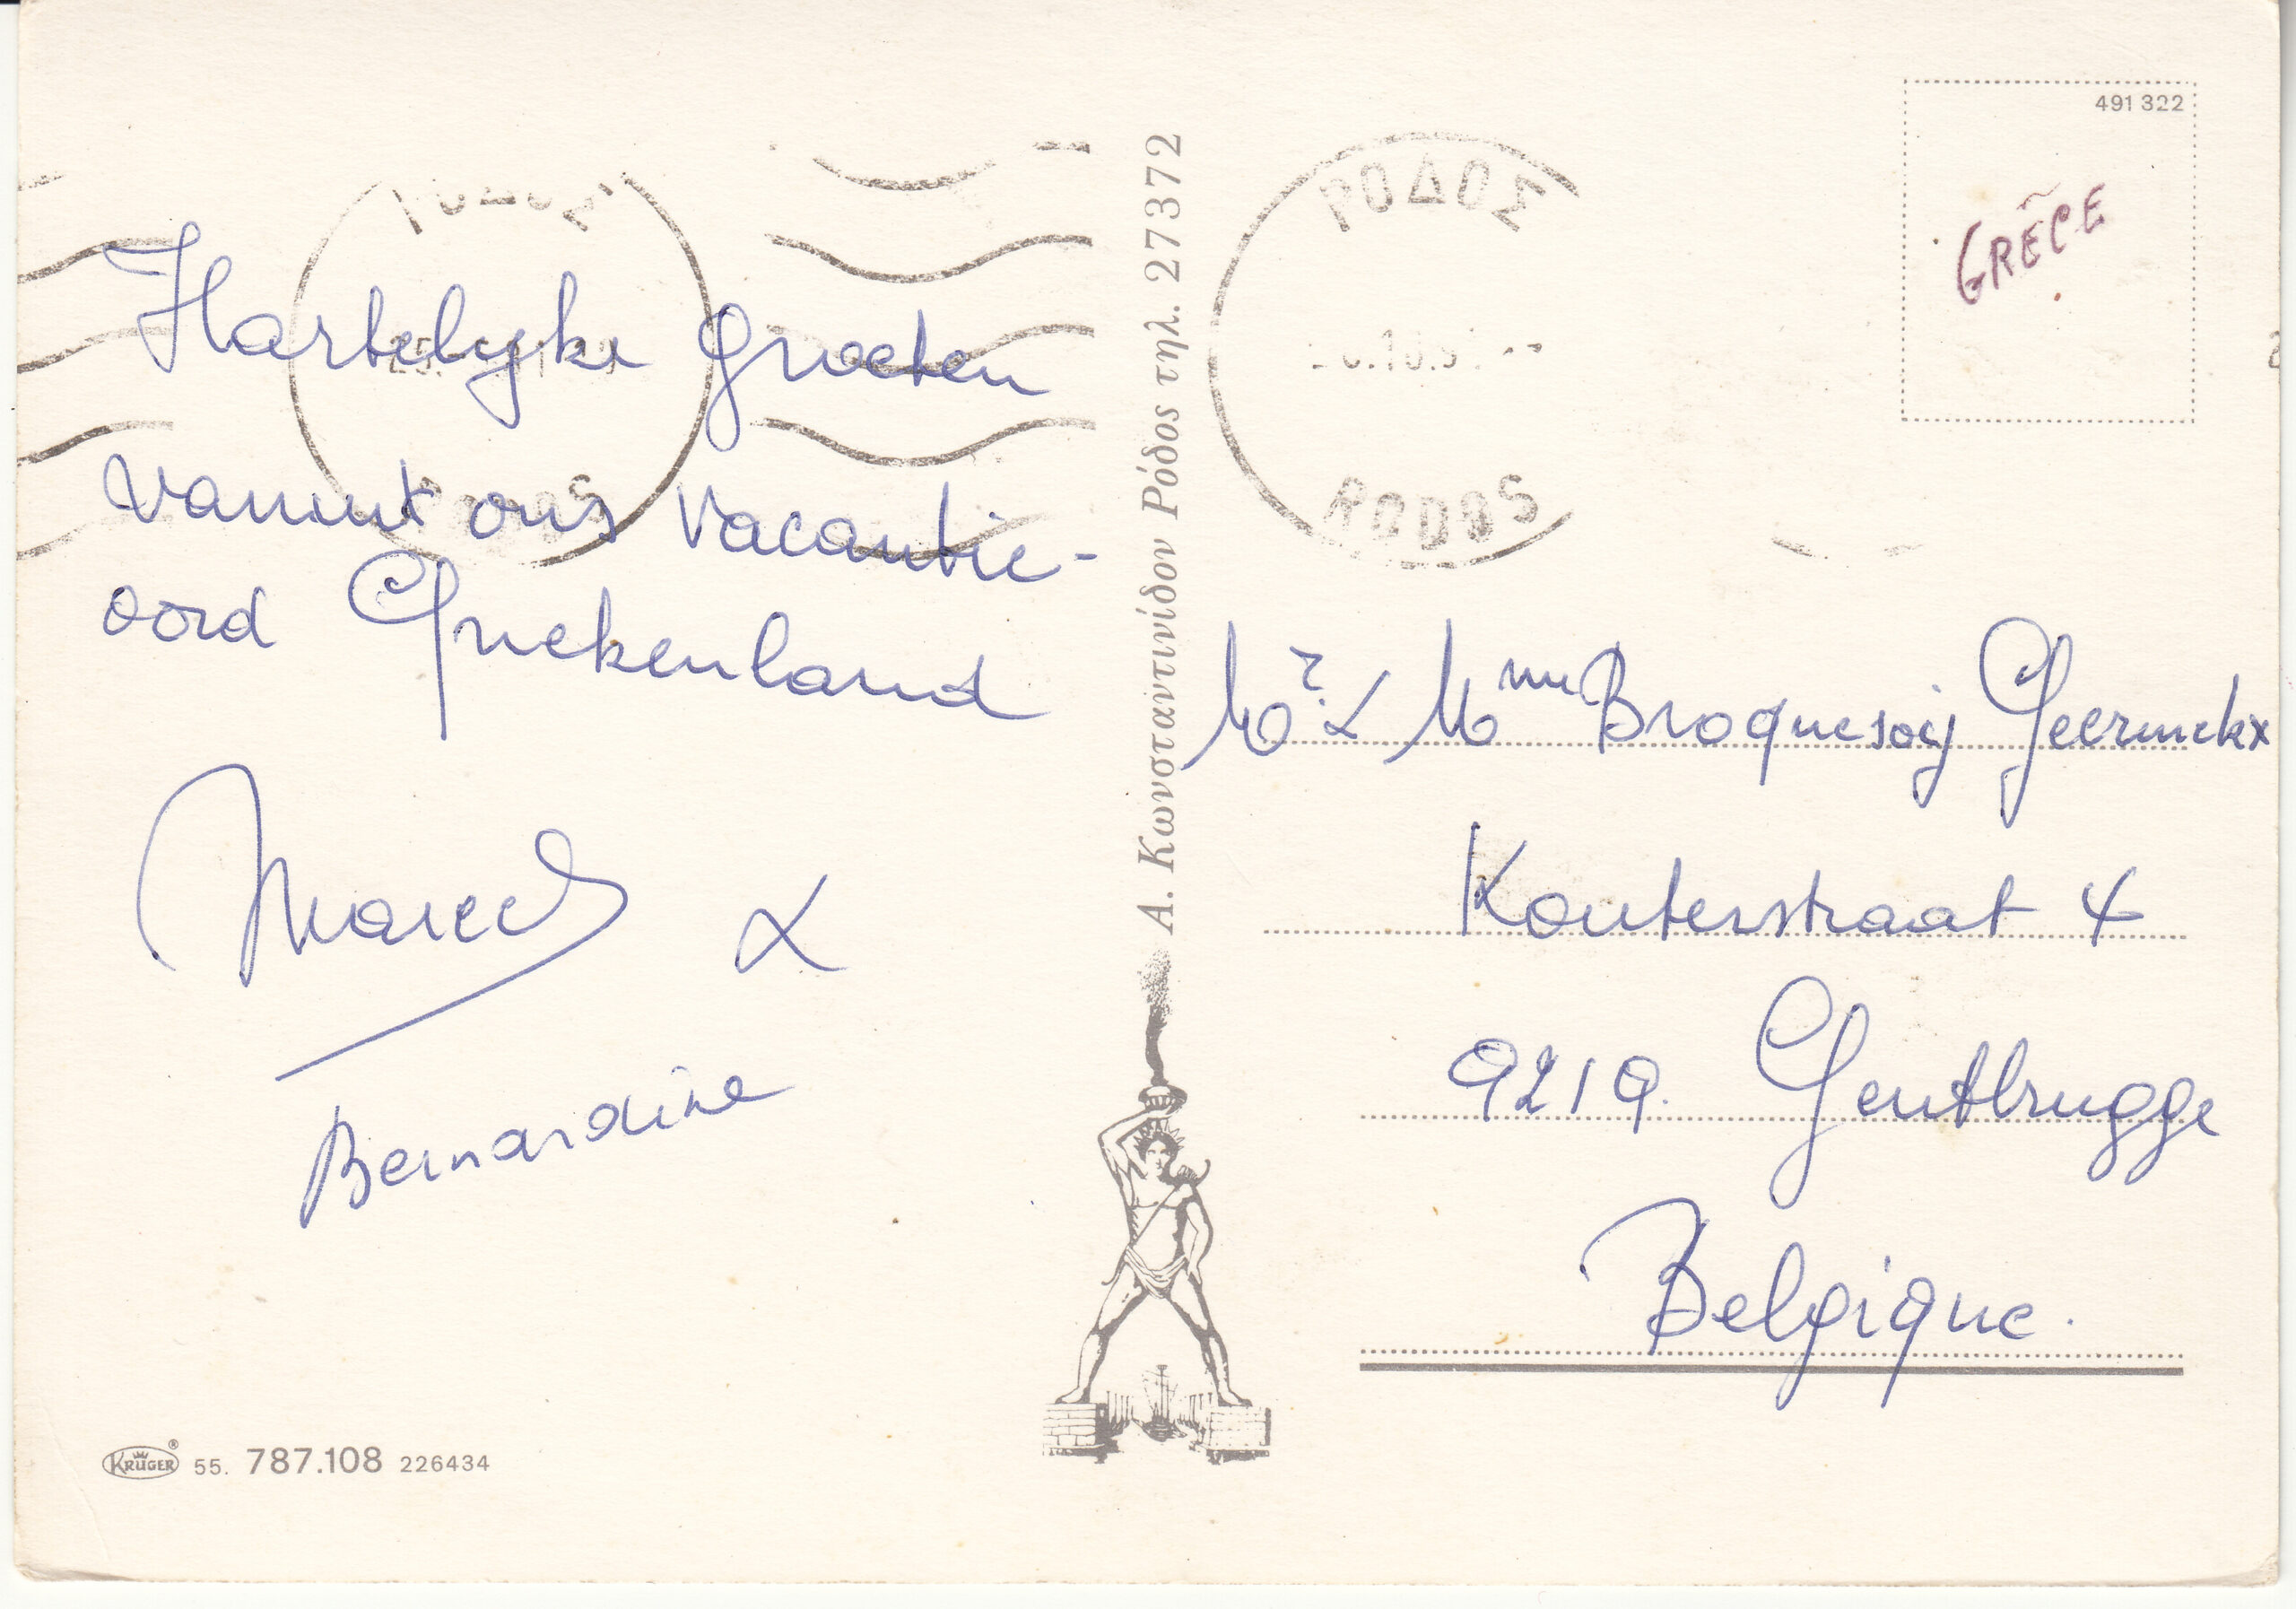 Hartelyke groeten
vanuit ons vacantie-
oord Griekenland
Marcel &
Bernardine
KRÜGER® 55. 787.108 226434
Α. Κωνσταντινίδου Ρόδος τηλ. 27372
ΡΟΔΟΣ
RODOS
491 322
GRÈCE
Mr & Mme Broquesoij Geerinckx
Kouterstraat 4
9219 Gentbrugge
Belgique.